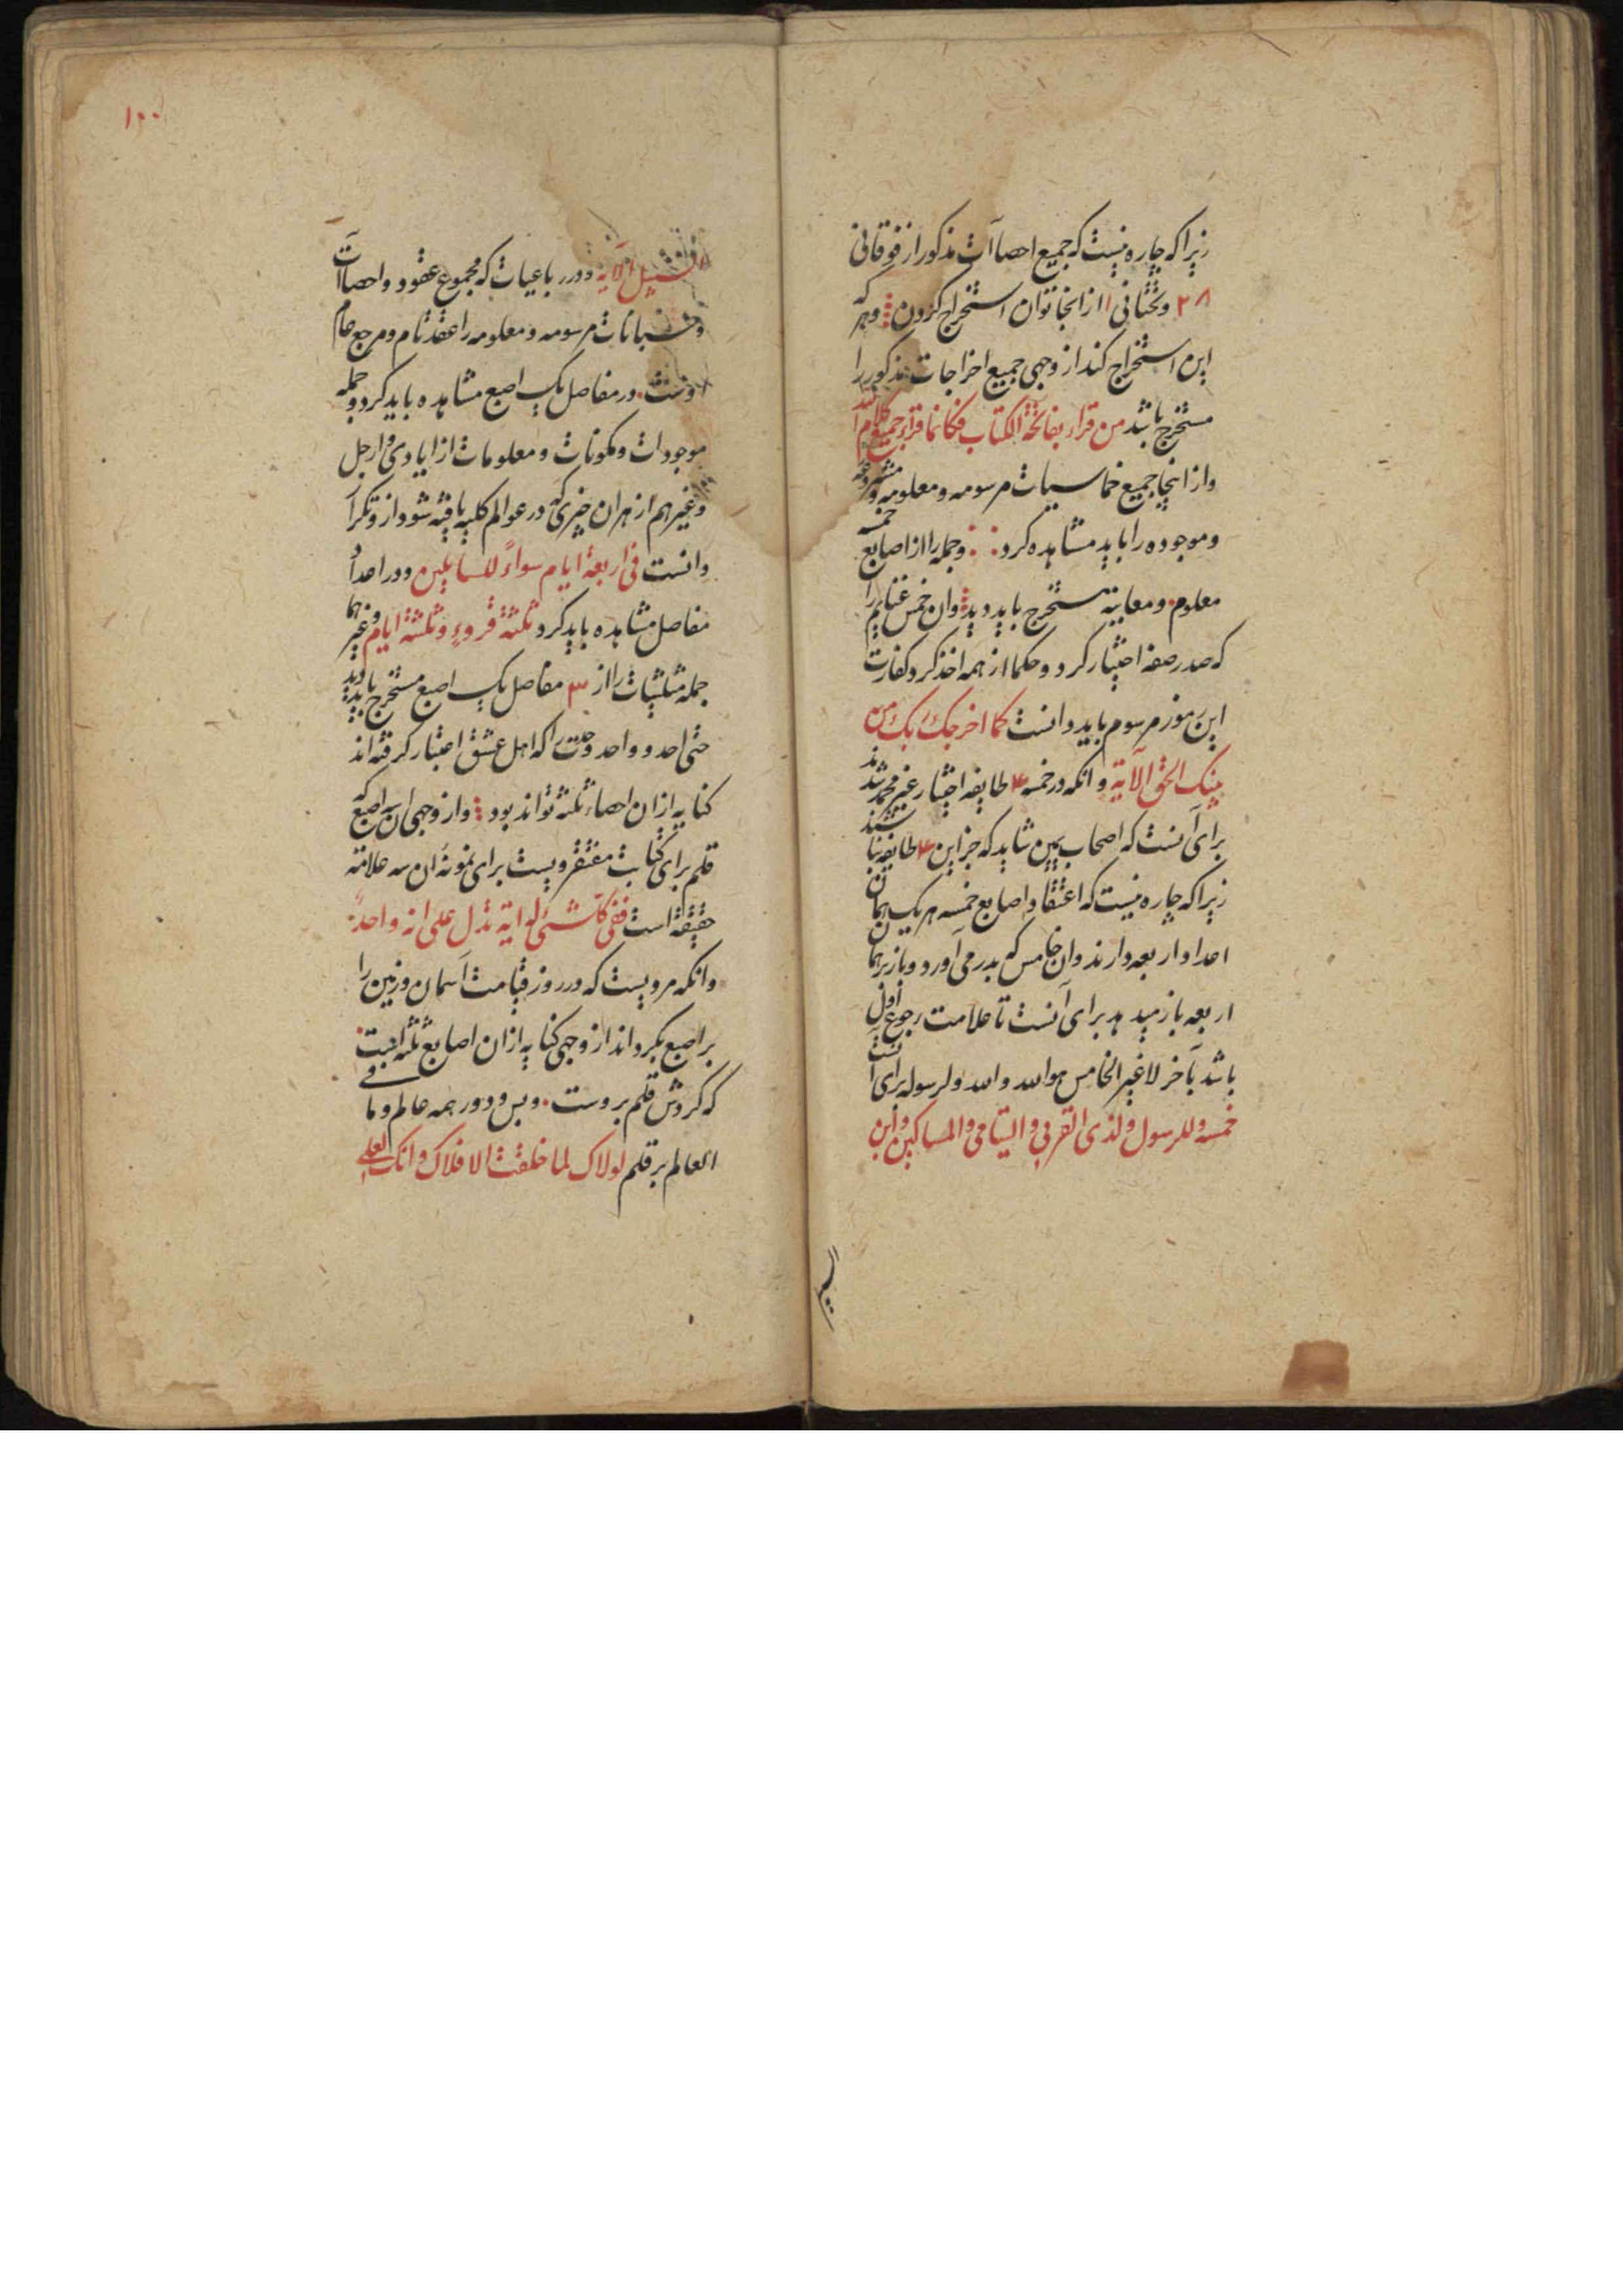 زیرا که چاره نیست که جمیع احصاآت مذکور از فوقانی
۲۸ و تحتانی ۱ از انجا توان استخراج کردن و هر که
این استخراج کند از وجهی جمیع اخراجات مذکور را
مستخرج باشد من قراء بفاتحة الکتاب فکانما قراء جمیع کلام الله
و از اینجا جمیع خماسیات مرسومه و معلومه و مشروحه
و موجوده را باید مشاهده کرد و جمله را از اصابع خمسه
معلوم و معاینه مستخرج باید دید و ان خمس غنایم را
که صدر صفه اختیار کرد و حکما از همه اخذ کرد کفارت
این رموز مرسوم باید دانست کما اخرجک ربک من
بیتک الحق الآیة و انکه در خمسه ۴ طایفه اختیار غیر محمد شدند
برای آنست که اصحاب یمین شاید که جز این ۴ طایفه نباشند
زیرا که چاره نیست که اعتقاد اصابع خمسه هر یک همان
اعداد اربعه دارند و ان خامس که بدر می آورد و باز برهمان
اربعه باز میدهد برای آنست تا علامت رجوع اول
باشد بآخر لا غیر الخامس هو الله و الله و لرسوله برای آنست
خمسه و للرسول و لذی القربی و الیتامی و المساکین و ابن
۱۰۰
السبیل الآیة و در رباعیات که مجموع عقود و احصاآت
و حسبانات مرسومه و معلومه را عقد تام و مرجع عام
اوست. در مفاصل یک اصبع مشاهده باید کرد و جمله
موجودات و مکونات و معلومات از ایادی و ارجل
و غیرهم از هران چیزی که در عوالم کلیه یافته شود از و تکرا
دانست فی اربعة ایام سواءً للسایلین و در اعداد
مفاصل مشاهده باید کرد ثلثة قروءٍ و ثلثة ایام و غیرهما
جمله مثلثیات را از ۳ مفاصل یک اصبع مستخرج باید دید
حتی احد و واحد وحدت را که اهل عشق اعتبار کرفته اند
کنایه ازان احصاء ثلثه تواند بود و از وجهی ان سه اصبع که
قلم برای کتابت مفتقر ویست برای نمونهٔ ان سه علامته
حقیقة است ففی کل شئ له ایة تدل علی انه واحدٌ
و انکه مرویست که در روز قیامت آسمان و زمین را
بر اصبع بکرداند از وجهی کنایه ازان اصابع ثلثه است
که کردش قلم بروست. و بس و دور همه عالم و ما فی
العالم بر قلم لولاک لما خلقت الافلاک و انک لعلی